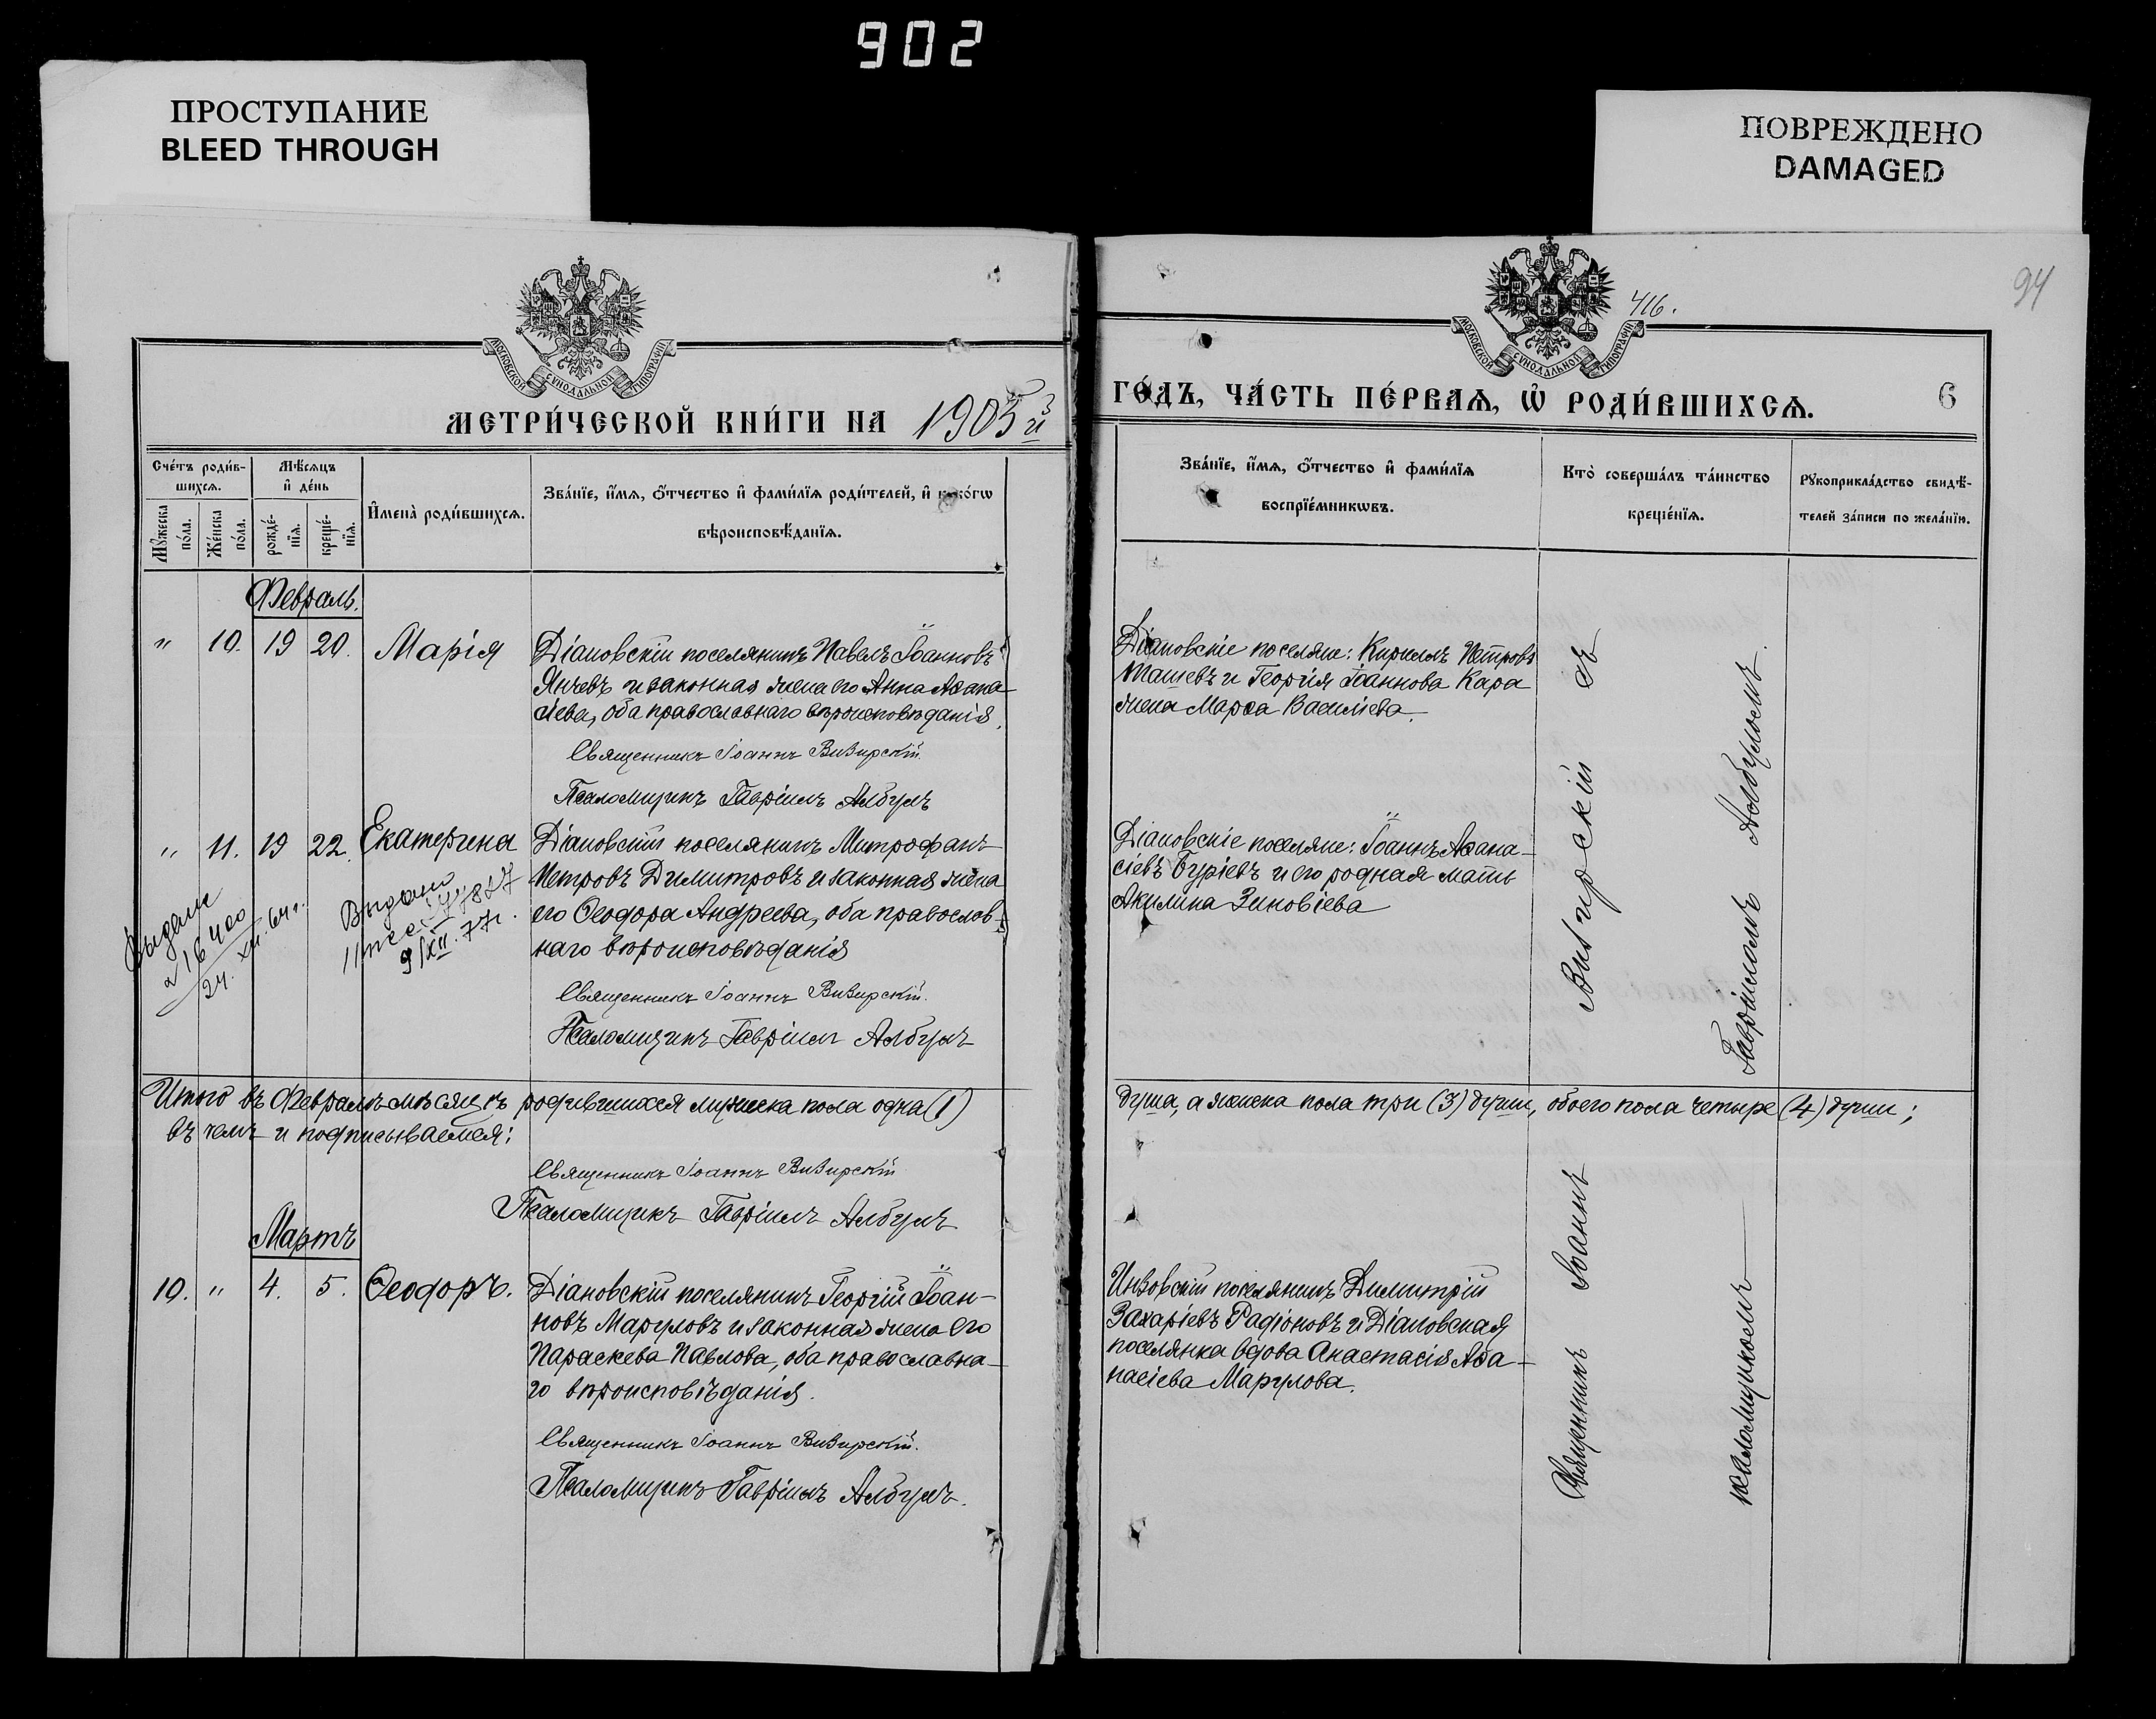 902
ПРОСТУПАНИЕ
BLEED THROUGH
ПОВРЕЖДЕНО
DAMAGED
94
416.
МОСКОВСКОЙ СѴНОДАЛЬНОЙ ТИПОГРАФІИ
МОСКОВСКОЙ СѴНОДАЛЬНОЙ ТИПОГРАФІИ
МЕТРИ́ЧЕСКОЙ КНИ́ГИ НА 1905 й
ГО́ДЪ, ЧА́СТЬ ПЕ́РВАѦ, Ѡ҆ РОДИ́ВШИХСѦ.
6
Сче́тъ роди́в-
шихсѧ.
Мѣ́сѧцъ
и҆ де́нь
Мꙋ́жеска
по́ла.
Же́нска
по́ла.
рожде́-
нїѧ.
креще́-
нїѧ.
И҆мена̀ роди́вшихсѧ.
Зва́нїе, и҆́мѧ, ѻ҆́тчество и҆ фами́лїѧ роди́телей, и҆ како́гѡ
вѣроисповѣ́данїѧ.
Зва́нїе, и҆́мѧ, ѻ҆́тчество и҆ фами́лїѧ
воспрїе́мникѡвъ.
Кто̀ соверша́лъ та́инство
креще́нїѧ.
Рꙋкоприкла́дство свидѣ́-
телей за́писи по жела́нїю.
Февраль.
" 10. 19 20. Марія
Діановскій поселянинъ Павелъ Іоанновъ
Янчевъ и законная жена его Анна Аѳана-
сіева, оба православнаго вѣроисповѣданія.
Священникъ Іоаннъ Визирскій.
Псаломщикъ Гавріилъ Албулъ
Діановскіе поселяне: Кириллъ Петровъ
Ташевъ и Георгія Іоаннова Кара
жена Марѳа Васильева.
" 11. 19 22. Екатерина
Діановскій поселянинъ Митрофанъ
Петровъ Димитровъ и законная жена
его Ѳеодора Андреева, оба православ-
наго вѣроисповѣданія
Священникъ Іоаннъ Визирскій.
Псаломщикъ Гавріилъ Албулъ
Діановскіе поселяне: Іоаннъ Аѳана-
сіевъ Буріевъ и его родная мать
Акилина Зиновіева
Выдано
16400
24. XII. 64 г.
Выдано
9/XII. 77 г.
Итого въ Февралѣ мѣсяцѣ родившихся мужеска пола одна (1)
въ чемъ и подписываемся:
душа, а женска пола три (3) души, обоего пола четыре (4) души;
Священникъ Іоаннъ Визирскій
Псаломщикъ Гавріилъ Албулъ
Мартъ
10. " 4. 5. Ѳеодоръ.
Діановскій поселянинъ Георгій Іоан-
новъ Маруловъ и законная жена его
Параскева Павлова, оба православна-
го вѣроисповѣданія.
Священникъ Іоаннъ Визирскій.
Псаломщикъ Гавріилъ Албулъ.
Инзовскій поселянинъ Димитрій
Захаріевъ Радіоновъ и Діановская
поселянка вдова Анастасія Аѳа-
насіева Марулова.
Священникъ Іоаннъ Визирскій съ
псаломщикомъ Гавріиломъ Албуломъ.